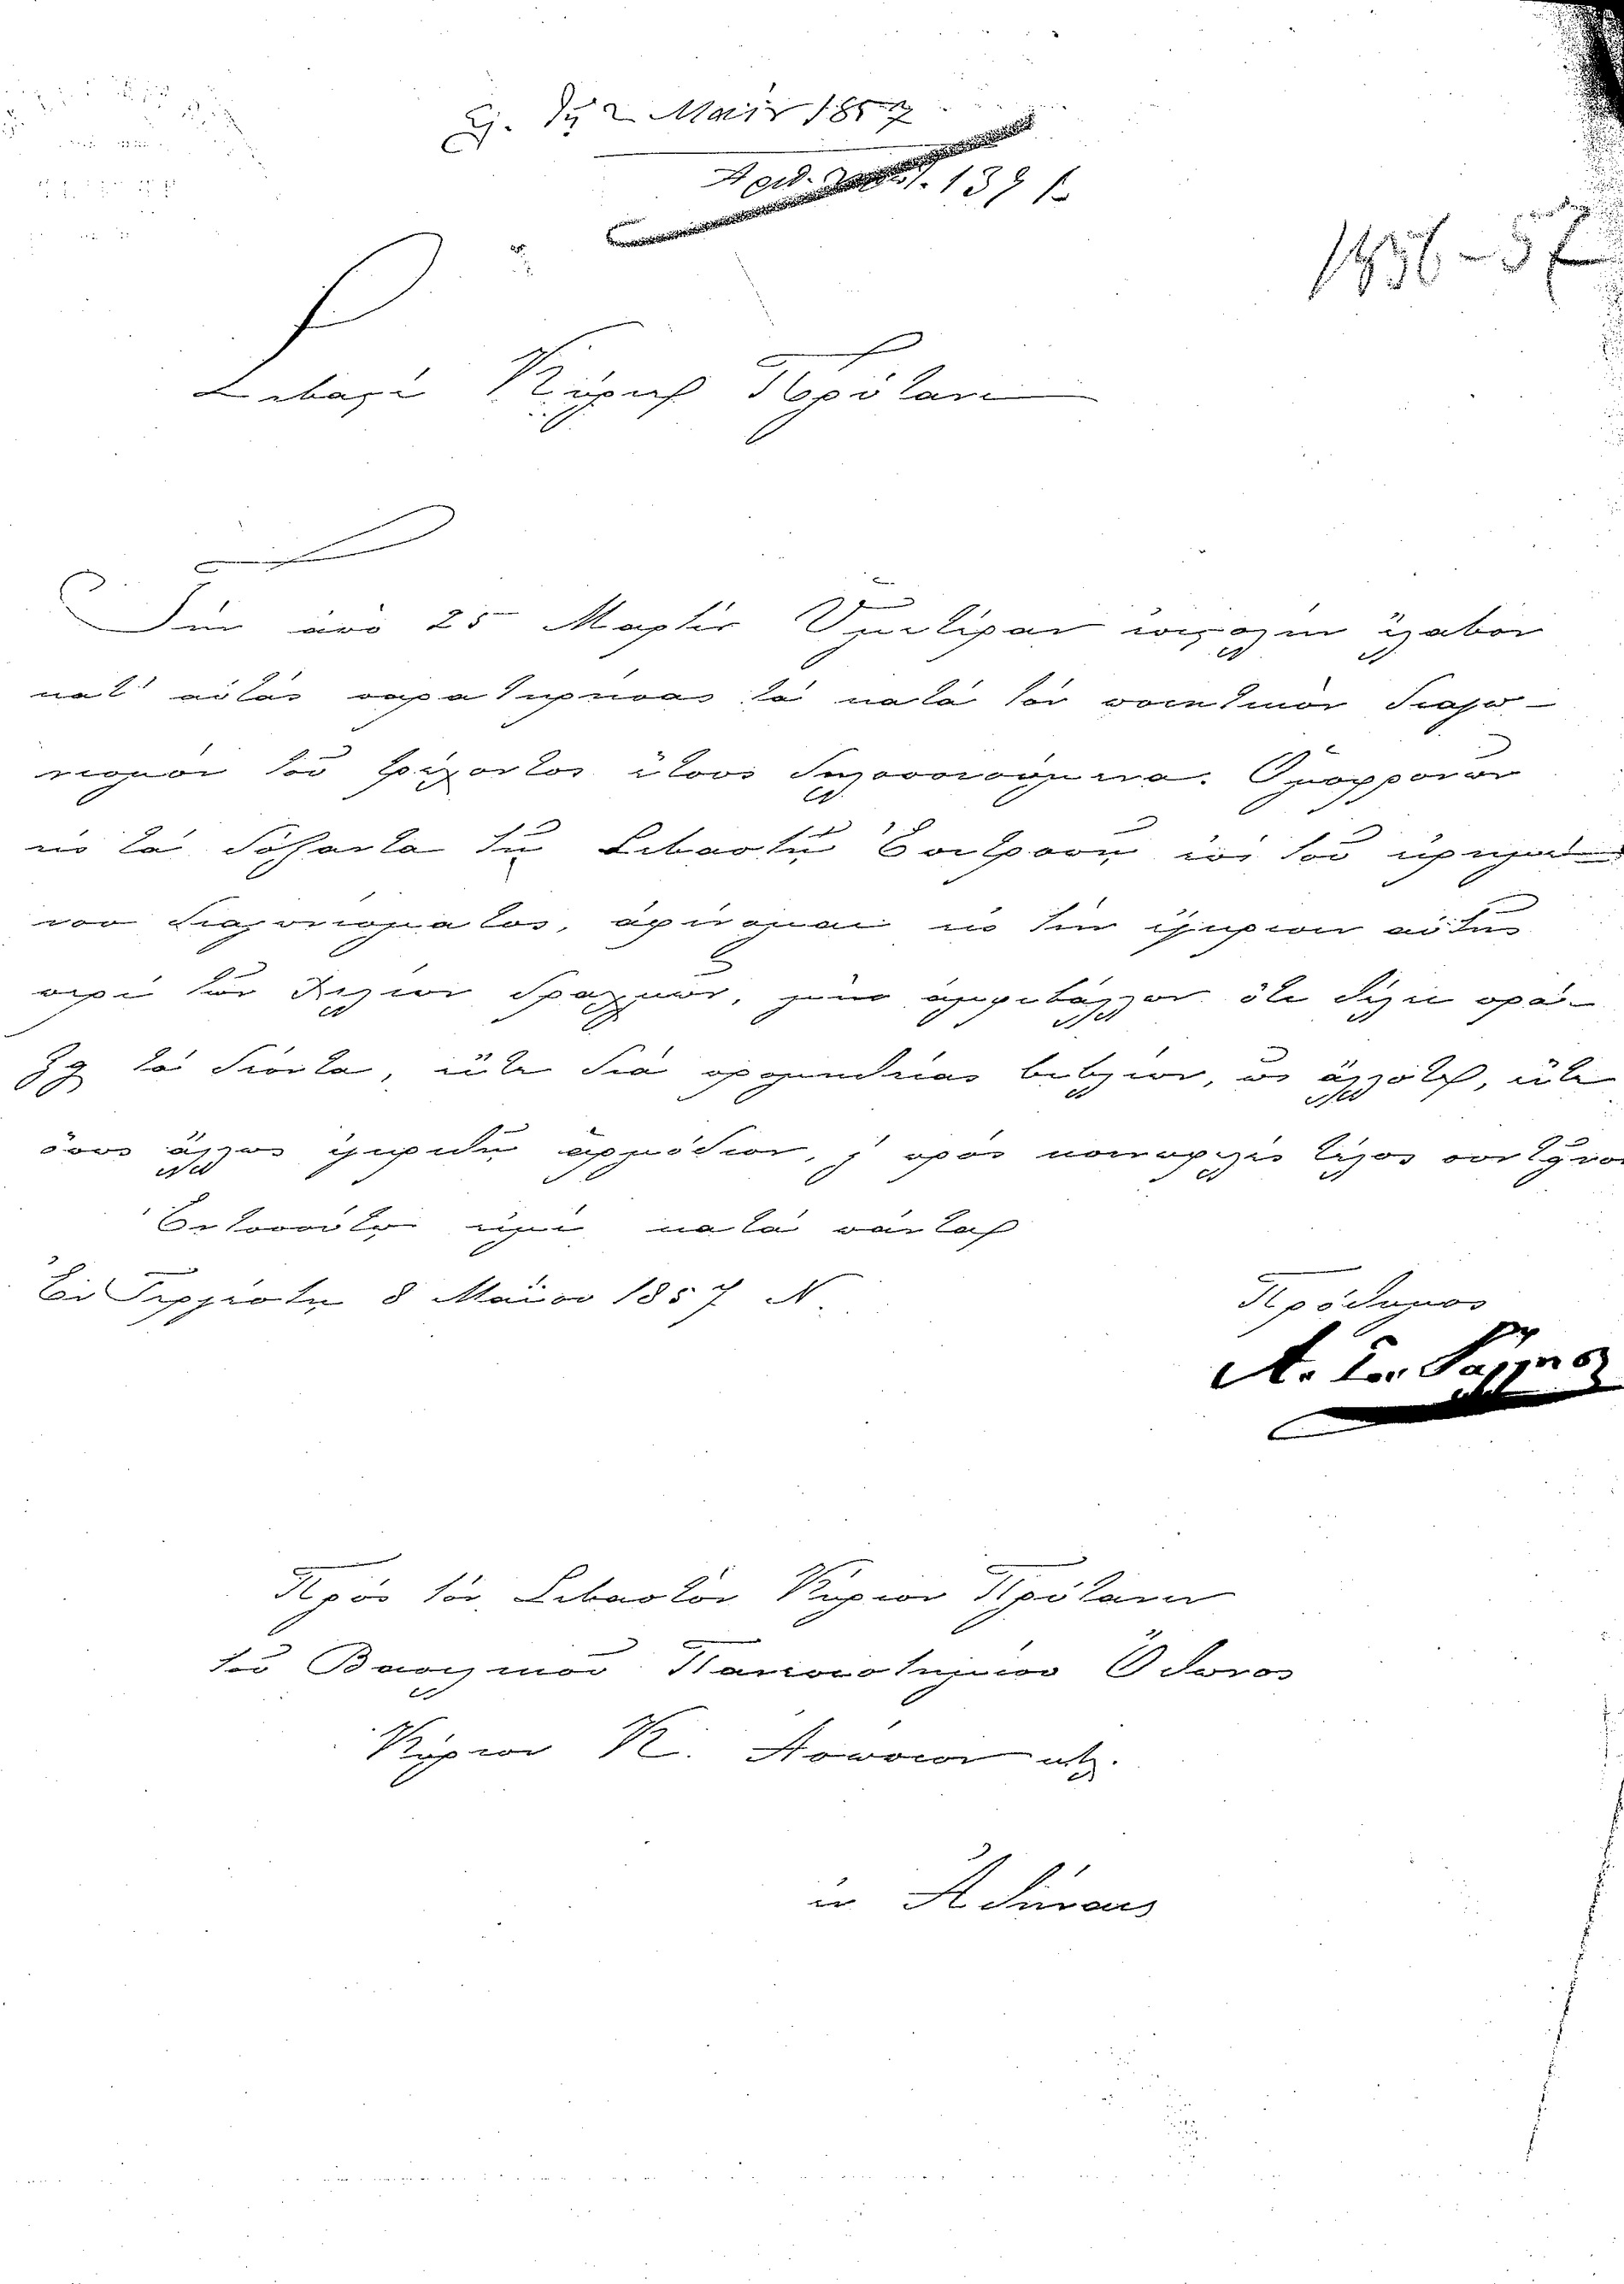 τῇ 2 Μαΐου 1857
Ἀριθ. 1391.
1856-57
Σεβαστέ Κύριέ Πρύτανι
Τὴν ἀπὸ 25 Μαρτίου Ὑμετέραν ἐπιστολὴν ἔλαβον
κατ' αὐτὰς παρατηρήσας τὰ κατὰ τὸν ποιητικὸν διαγω-
νισμὸν τοῦ τρέχοντος ἔτους δημοσιευόμενα. Ὁμοφρονῶν
εἰς τὰ δόξαντα τῇ Σεβαστῇ Ἐπιτροπῇ ἐπὶ τοῦ
διαγωνίσματος, ἀρκοῦμαι εἰς τὴν ψήφισιν αὐτῆς
περὶ τῶν χιλίων δραχμῶν, ὑπολαμβάνων ὅτι θέλει πρά-
ξῃ τὰ δέοντα, εἴτε διὰ προμηθείας βιβλίων, ὡς ἄλλοτε, εἴτε
ὅπως ἄλλως κρίνῃ ἁρμόδιον, ἢ πρὸς κοινωφελὲς τέλος συντεῖνον
Εὐπειθέστατος κατὰ πάντα
Ἐν Τεργέστῃ 8 Μαΐου 1857 Ν.
Πρόθυμος
Α. Σ. Ράλλης
Πρὸς τὸν Σεβαστὸν Κύριον Πρύτανιν
τοῦ Βασιλικοῦ Πανεπιστημίου Ὄθωνος
Κύριον Κ. Ἀσώπιον κτλ.
ἐν Ἀθήναις